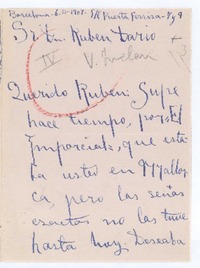 Barcelona - 6.
Sr. Dn. Ruben Dario
IV
Querido Ruben: Supe
hace tiempo, por El
Imparcial, que esta-
ba usted en Mallor
ca, pero las señas
exactas no las tuve
hasta hoy. Deseaba